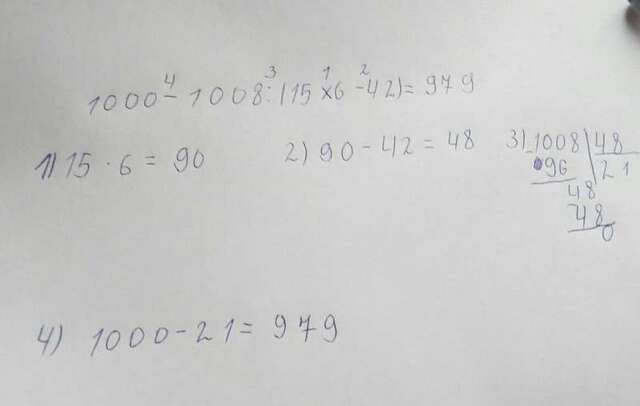 1000 - 1008 : (15 × 6 - 42) = 979
4 3 1 2
1) 15 · 6 = 90
2) 90 - 42 = 48
3) 1008 | 48
- 96 | 21
48
48
0
4) 1000 - 21 = 979